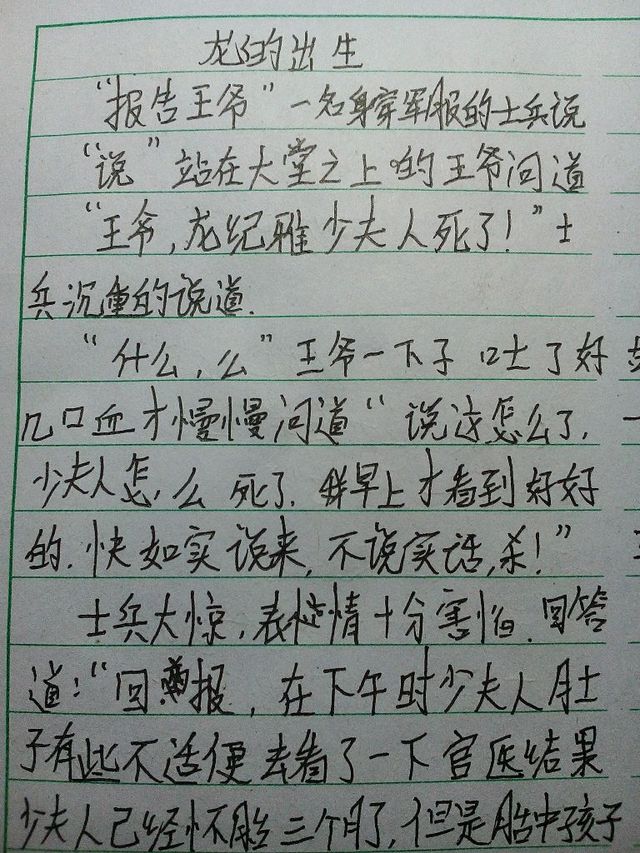 龙的出生
“报告王爷”一名身穿军服的士兵说
“说”站在大堂之上的王爷问道
“王爷,龙纪雅少夫人死了!”士
兵沉重的说道.
“什么,么”王爷一下子吐了好
几口血才慢慢问道“说这怎么了,
少夫人怎么死了.我早上才看到好好
的.快如实说来,不说实话,杀!”
士兵大惊,表情十分害怕.回答
道:“回报,在下午时少夫人肚
子有些不活便去看了一下官医结果
少夫人已经怀胎三个月了,但是胎中孩子